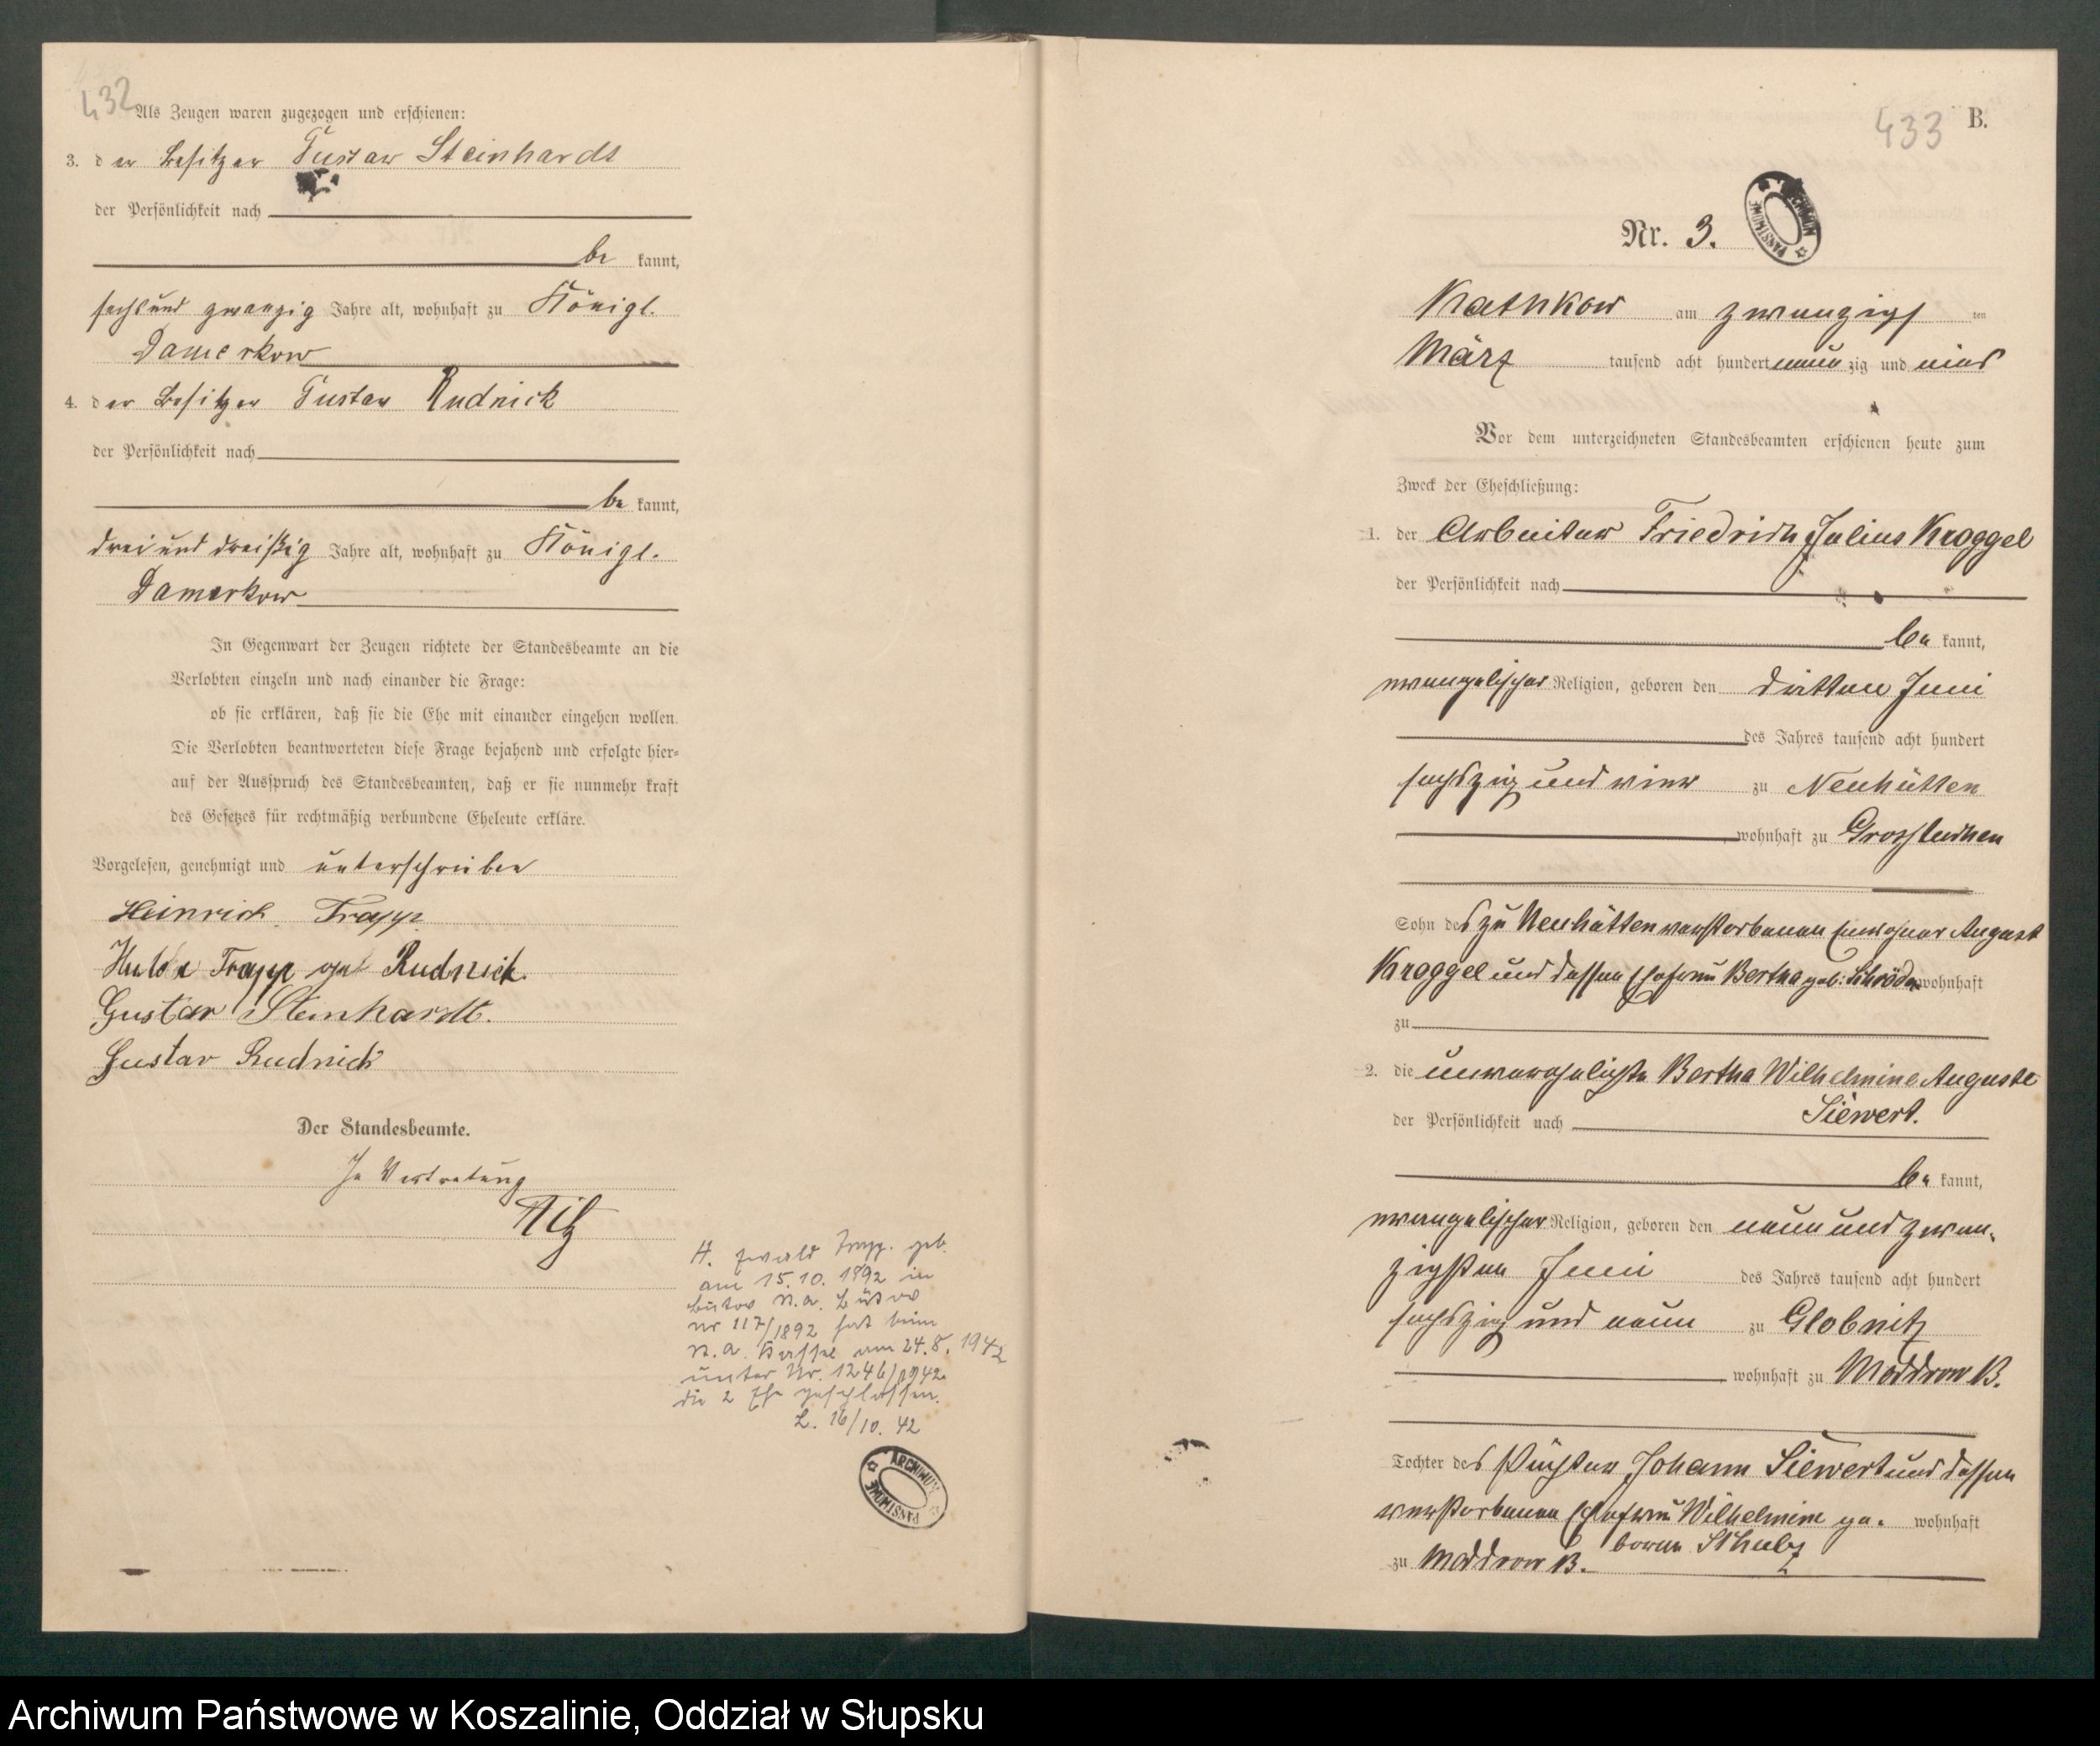 432
Als Zeugen waren zugezogen und erschienen:
3. der Besitzer Gustav Steinhardt
der Persönlichkeit nach
be kannt,
sechsund zwanzig Jahre alt, wohnhaft zu Königl.
Damerkow
4. der Besitzer Gustav Rudnick
der Persönlichkeit nach
be kannt,
drei und dreißig Jahre alt, wohnhaft zu Königl.
Damerkow
In Gegenwart der Zeugen richtete der Standesbeamte an die
Verlobten einzeln und nach einander die Frage:
ob sie erklären, daß sie die Ehe mit einander eingehen wollen.
Die Verlobten beantworteten diese Frage bejahend und erfolgte hier-
auf der Ausspruch des Standesbeamten, daß er sie nunmehr kraft
des Gesetzes für rechtmäßig verbundene Eheleute erkläre.
Vorgelesen, genehmigt und unterschrieben
Heinrich Trapp
Hulda Trapp geb Rudnick.
Gustav Steinhardt.
Gustav Rudnick
Der Standesbeamte.
In Vertretung
am 15.10.1892 in
Bütow
nr 117/1892 hat beim
am 24.8.1942
unter Nr. 1246/1942
die 2 Ehe geschlossen.
16/10. 42
ARCHIWUM PAŃSTWOWE
433 B.
Nr. 3.
ARCHIWUM PAŃSTWOWE
Kathkow am zwanzigsten
März tausend acht hundert neunzig und eins
Vor dem unterzeichneten Standesbeamten erschienen heute zum
Zweck der Eheschließung:
1. der Arbeiter Friedrich Julius Kroggel
der Persönlichkeit nach
be kannt,
evangelischer Religion, geboren den dritten Juni
des Jahres tausend acht hundert
sechszig und vier zu Neuhütten
wohnhaft zu Grossluchen
Sohn des zu Neuhütten verstorbenen Einwohner August
Kroggel und dessen Ehefrau Bertha geb: Schröder wohnhaft
zu
2. die unverehelichte Bertha Wilhelmine Auguste
Siewert.
der Persönlichkeit nach
be kannt,
evangelischer Religion, geboren den neun und zwan-
zigsten Juni des Jahres tausend acht hundert
sechszig und neun zu Globnitz
wohnhaft zu Moddrow B.
Tochter des Johann Siewert und dessen
verstorbenen Ehefrau Wilhelmine ge- wohnhaft
borene Schulz
zu Moddrow B.
Archiwum Państwowe w Koszalinie, Oddział w Słupsku